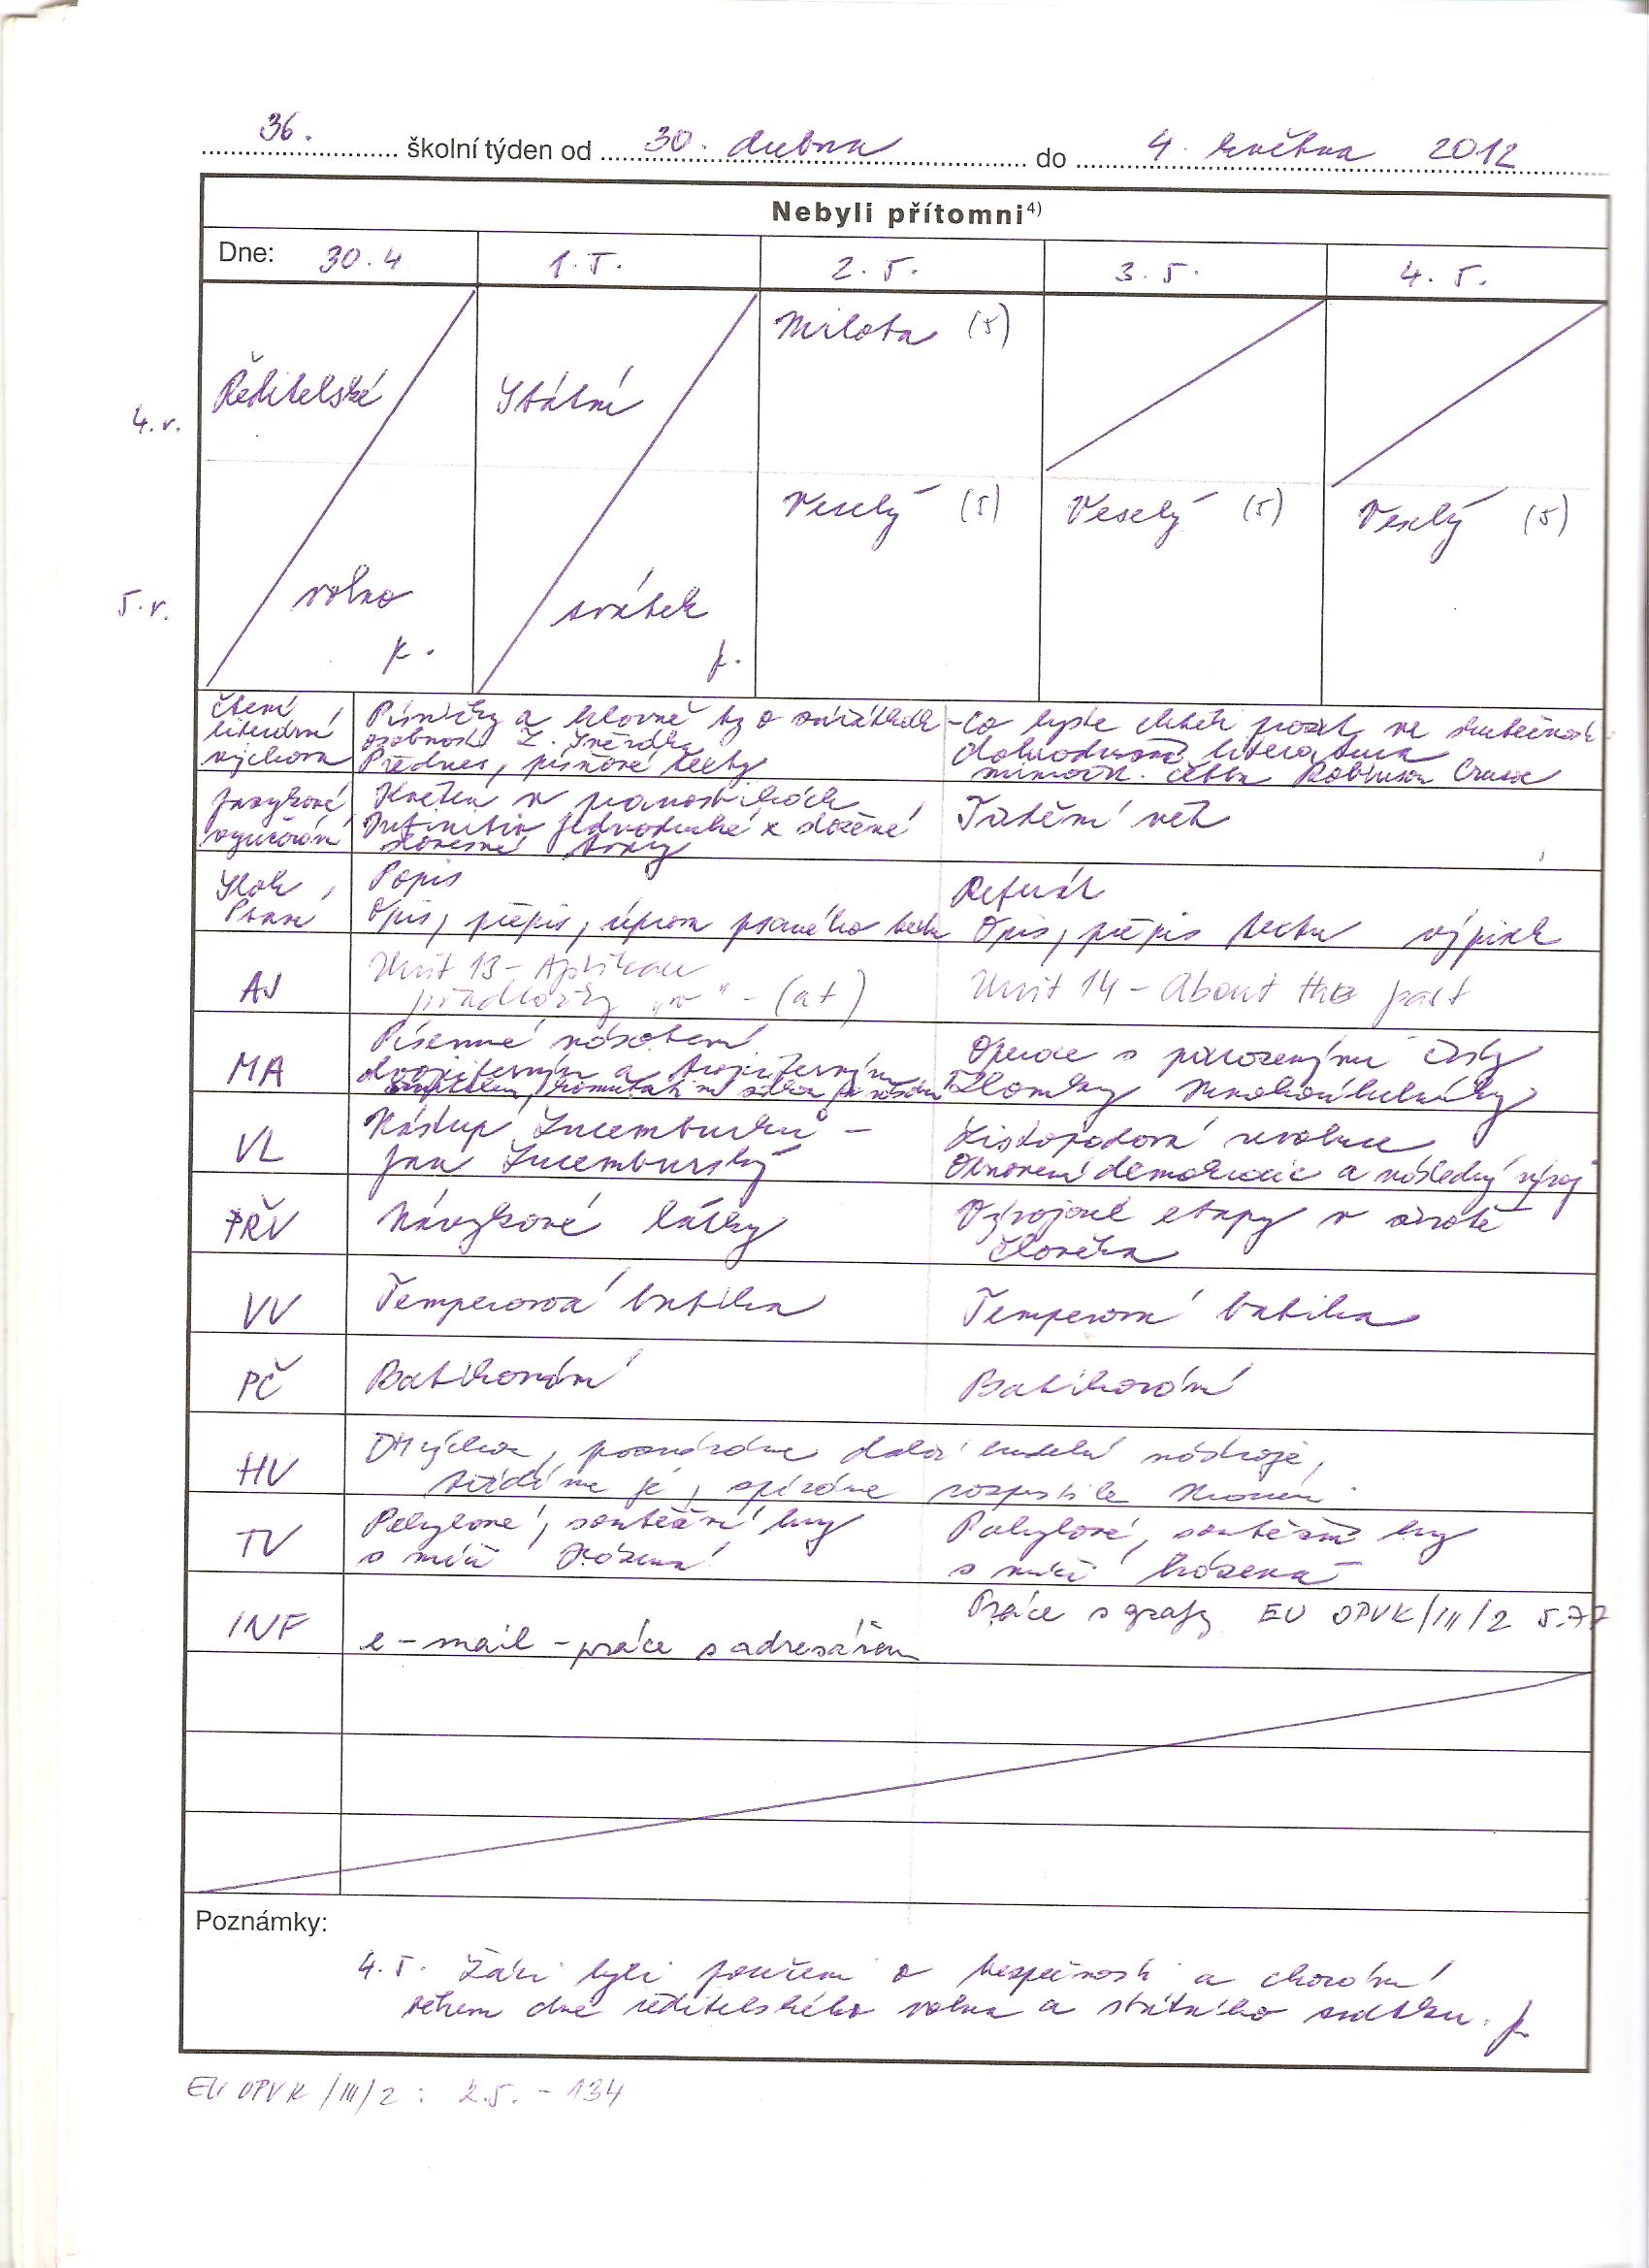 36. školní týden od 30. dubna do 4. května 2012
Nebyli přítomni⁴⁾
Dne: 30.4 1. 5. 2. 5. 3. 5. 4. 5.
4. r. Ředitelské Státní Milota (5)
Veselý (5) Veselý (5) Veselý (5)
5. r. volno svátek
Čtení, Písničky a hlavně ty o zvířátkách - Co byste chtěli prožít ve skutečnosti
literární osobnost Z. Svěrák dobrodružná literatura
výchova Přednes, písňové texty mimočít. četba Robinson Crusoe
Jazykové Květen v pranostikách Třídění vět
vyučování Infinitiv jednoduché x složené
slovesné tvary
Sloh, Popis Referát
Psaní Opis, přepis, úprava psaného textu Opis, přepis textu výpisk
AJ Unit 13 - Aplikace Unit 14 - About the past
předložky „v" - (at)
MA Písemné násobení Operace s přirozenými čísly
dvojciferným a trojciferným Zlomky Mnohoúhelníky
VL Nástup Lucemburků - Listopadová revoluce
Jan Lucemburský Obnovení demokracie a následný vývoj
PŘV Návykové látky Vývojové etapy v životě
člověka
VV Temperová batika Temperová batika
PČ Batikování Batikování
HV poznáváme další hudební nástroje,
třídíme je, zpíváme rozpustile
TV Pohybové, soutěžní hry Pohybové, soutěžní hry
s míči házená s míči házená
INF Práce s grafy EU OPVK/III/2 5.77
e-mail - práce s adresářem
Poznámky:
4. 5. Žáci byli poučeni o bezpečnosti a chování
během dne ředitelského volna a státního svátku.
EU OPVK/III/2: 2.5. - 134